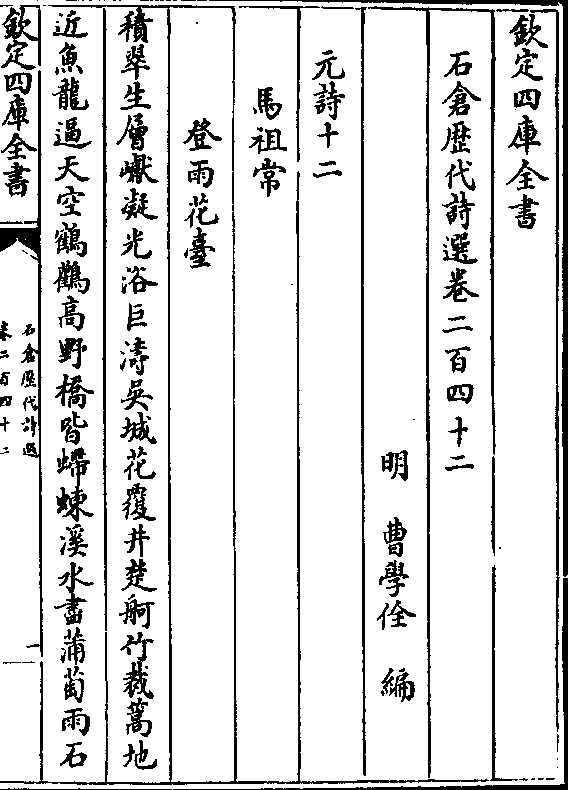 欽定四庫全書
石倉歴代詩選卷二百四十二
明 曹學佺 編
元詩十二
馬祖常
登雨花臺
積翠生層巘凝光浴巨濤吳城花覆井楚舸竹裁篙地
近魚龍逼天空鶴鸛高野橋皆螮蝀溪水盡蒲萄雨石
欽定四庫全書
石倉歴代詩選
卷二百四十二
一